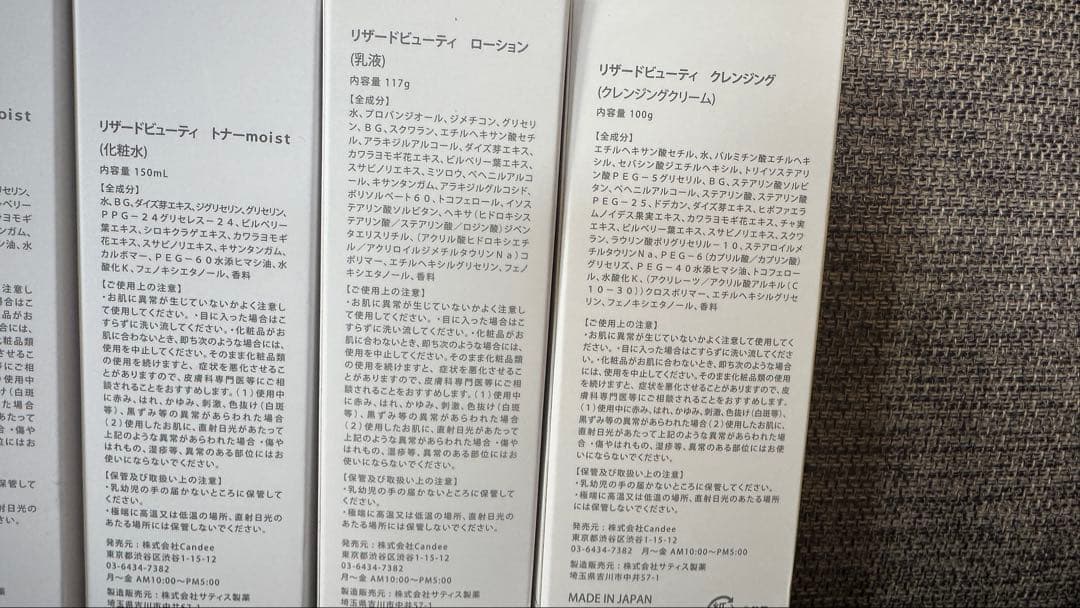 oist
リザードビューティ トナーmoist
(化粧水)
内容量 150mL
【全成分】
水、BG、ダイズ芽エキス、ジグリセリン、グリセリン、
PPG-24グリセレス-24、ビルベリー
葉エキス、シロキクラゲエキス、カワラヨモギ
花エキス、スサビノリエキス、キサンタンガム、
カルボマー、PEG-60水添ヒマシ油、水
酸化K、フェノキシエタノール、香料
【ご使用上の注意】
・お肌に異常が生じていないかよく注意し
て使用してください。・目に入った場合はこ
すらずに洗い流してください。・化粧品がお
肌に合わないとき、即ち次のような場合には、
使用を中止してください。そのまま化粧品類
の使用を続けますと、症状を悪化させるこ
とがありますので、皮膚科専門医等にご相
談されることをおすすめします。(1)使用中
に赤み、はれ、かゆみ、刺激、色抜け(白斑
等)、黒ずみ等の異常があらわれた場合
(2)使用したお肌に、直射日光があたって
上記のような異常があらわれた場合 ・傷や
はれもの、湿疹等、異常のある部位にはお
使いにならないでください。
【保管及び取扱い上の注意】
・乳幼児の手の届かないところに保管して
ください。
・極端に高温又は低温の場所、直射日光の
あたる場所には保管しないでください。
発売元:株式会社Candee
東京都渋谷区渋谷1-15-12
03-6434-7382
月〜金 AM10:00〜PM5:00
製造販売元:株式会社サティス製薬
埼玉県吉川市中井57-1
リザードビューティ ローション
(乳液)
内容量 117g
【全成分】
水、プロパンジオール、ジメチコン、グリセリ
ン、BG、スクワラン、エチルヘキサン酸セチ
ル、アラキジルアルコール、ダイズ芽エキス、
カワラヨモギ花エキス、ビルベリー葉エキス、
スサビノリエキス、ミツロウ、ベヘニルアルコ
ール、キサンタンガム、アラキジルグルコシド、
ポリソルベート60、トコフェロール、イソス
テアリン酸ソルビタン、ヘキサ(ヒドロキシス
テアリン酸/ステアリン酸/ロジン酸)ジペン
タエリスリチル、(アクリル酸ヒドロキシエチ
ル/アクリロイルジメチルタウリンNa)コ
ポリマー、エチルヘキシルグリセリン、フェノ
キシエタノール、香料
【ご使用上の注意】
・お肌に異常が生じていないかよく注意し
て使用してください。・目に入った場合はこ
すらずに洗い流してください。・化粧品がお
肌に合わないとき、即ち次のような場合には、
使用を中止してください。そのまま化粧品類
の使用を続けますと、症状を悪化させるこ
とがありますので、皮膚科専門医等にご相
談されることをおすすめします。(1)使用中
に赤み、はれ、かゆみ、刺激、色抜け(白斑
等)、黒ずみ等の異常があらわれた場合
(2)使用したお肌に、直射日光があたって
上記のような異常があらわれた場合 ・傷や
はれもの、湿疹等、異常のある部位にはお
使いにならないでください。
【保管及び取扱い上の注意】
・乳幼児の手の届かないところに保管して
ください。
・極端に高温又は低温の場所、直射日光の
あたる場所には保管しないでください。
発売元:株式会社Candee
東京都渋谷区渋谷1-15-12
03-6434-7382
月〜金 AM10:00〜PM5:00
製造販売元:株式会社サティス製薬
埼玉県吉川市中井57-1
リザードビューティ クレンジング
(クレンジングクリーム)
内容量 100g
【全成分】
エチルヘキサン酸セチル、水、パルミチン酸エチルヘキ
シル、セバシン酸ジエチルヘキシル、トリイソステアリ
ン酸PEG-5グリセリル、BG、ステアリン酸ソルビ
タン、ベヘニルアルコール、ステアリン酸、ステアリン酸
PEG-25、ドデカン、ダイズ芽エキス、ヒポファエラ
ムノイデス果実エキス、カワラヨモギ花エキス、チャ実
エキス、ビルベリー葉エキス、スサビノリエキス、スクワ
ラン、ラウリン酸ポリグリセリル-10、ステアロイルメ
チルタウリンNa、PEG-6(カプリル酸/カプリン酸)
グリセリズ、PEG-40水添ヒマシ油、トコフェロー
ル、水酸化K、(アクリレーツ/アクリル酸アルキル(C
10-30))クロスポリマー、エチルヘキシルグリセ
リン、フェノキシエタノール、香料
【ご使用上の注意】
・お肌に異常が生じていないかよく注意して使用してく
ださい。・目に入った場合はこすらずに洗い流してくださ
い。・化粧品がお肌に合わないとき、即ち次のような場合
には、使用を中止してください。そのまま化粧品類の使用
を続けますと、症状を悪化させることがありますので、皮
膚科専門医等にご相談されることをおすすめします。
(1)使用中に赤み、はれ、かゆみ、刺激、色抜け(白斑等)、
黒ずみ等の異常があらわれた場合(2)使用したお肌に、
直射日光があたって上記のような異常があらわれた場
合 ・傷やはれもの、湿疹等、異常のある部位にはお使
いにならないでください。
【保管及び取扱い上の注意】
・乳幼児の手の届かないところに保管してください。
・極端に高温又は低温の場所、直射日光のあたる場所
には保管しないでください。
発売元:株式会社Candee
東京都渋谷区渋谷1-15-12
03-6434-7382 月〜金 AM10:00〜PM5:00
製造販売元:株式会社サティス製薬
埼玉県吉川市中井57-1
MADE IN JAPAN